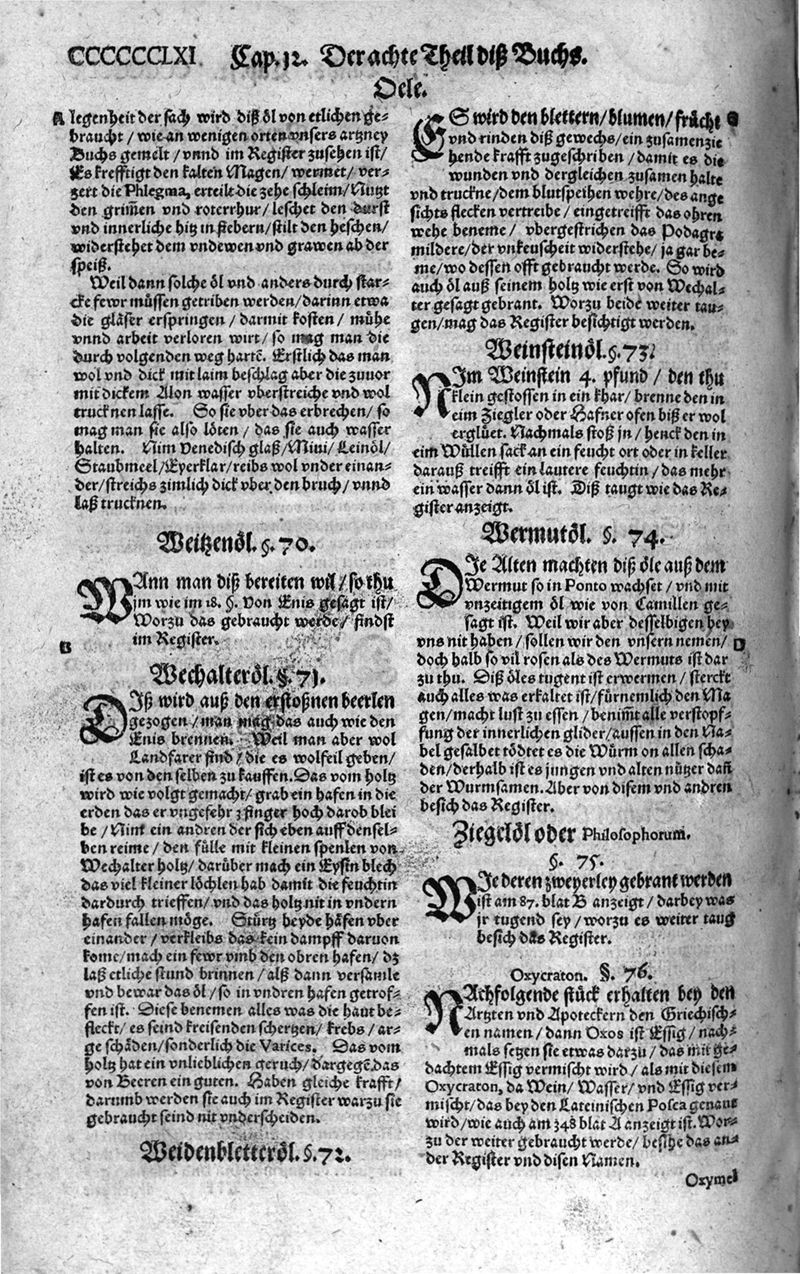 CCCCCCCLXI Cap. 12. Der achte Theil diß Buchs.
Oele.
A legenheit der sach wird diß öl von etlichen ge-
braucht / wie an wenigen orten vnsers artzney
Buchs gemelt / vnnd im Register zusehen ist /
Es krefftigt den kalten Magen / wermet / ver-
zert die Phlegma, erteilt die zehe schleim / Nutzt
den grim̃en vnd roterrhur / leschet den durst
vnd innerliche hitz in fiebern / stilt den heschen /
widerstehet dem vndewen vnd grawen ab der
speiß.
Weil dann solche öl vnd anders durch star-
cke fewr müssen getriben werden / darinn etwa
die gläser erspringen / darmit kosten / mühe
vnnd arbeit verloren wirt / so mag man die
durch volgenden weg hartẽ. Erstlich das man
wol vnd dick mit laim beschlag aber die zuuor
mit dickem Alon wasser vberstreiche vnd wol
trucknen lasse. So sie vber das erbrechen / so
mag man sie also löten / das sie auch wasser
halten. Nim Venedisch glaß / Mini / Leinöl /
Staubmeel / Eyerklar / reibs wol vnder einan-
der / streichs zimlich dick vber den bruch / vnnd
laß trucknen.
Weitzenöl. §. 70.
WAnn man diß bereiten wil / so thu
jm wie im 18. §. Von Enis gesagt ist /
Worzu das gebraucht werde / findst
im Register.
B
Wechalteröl. §. 71.
DIß wird auß den erstoßnen beerlen
gezogen / man mag das auch wie den
Enis brennen. Weil man aber wol
Landfarer find / die es wolfeil geben /
ist es von den selben zu kauffen. Das vom holtz
wird wie volgt gemacht / grab ein hafen in die
erden das er vngefehr 3 finger hoch darob blei
be / Nim̃ ein andren der sich eben auff densel-
ben reime / den fülle mit kleinen spenlen von
Wechalter holtz / darüber mach ein Eysin blech
das viel kleiner löchlen hab damit die feuchtin
dardurch trieffen / vnd das holtz nit in vndern
hafen fallen möge. Stürtz beyde häfen vber
einander / verkleibs das kein dampff daruon
kome / mach ein fewr vmb den obren hafen / dz
laß etliche stund brinnen / alß dann versamle
vnd bewar das öl / so in vndren hafen getrof-
fen ist. Diese benemen alles was die haut be-
fleckt / es seind kreisenden schertzen / krebs / ar-
ge schäden / sonderlich die Varices. Das vom
holtz hat ein vnlieblichen geruch / dargegẽ das
von Beeren ein guten. Haben gleiche krafft /
darumb werden sie auch im Register warzu sie
gebraucht seind nit vnderscheiden.
Weidenbletteröl. §. 72.
ES wird den blettern / blumen / frücht
vnd rinden diß gewechs / ein zusamenzie
hende krafft zugeschriben / damit es die
wunden vnd dergleichen zusamen halte
vnd truckne / dem blutspeihen wehre / des ange
sichts flecken vertreibe / eingetreifft das ohren
wehe beneme / vbergestrichen das Podagra
mildere / der vnkeuscheit widerstehe / ja gar be-
me / wo dessen offt gebraucht werde. So wird
auch öl auß seinem holtz wie erst von Wechal-
ter gesagt gebrant. Worzu beide weiter tau-
gen / mag das Register besichtigt werden.
Weinsteinöl. §. 73.
NIm Weinstein 4. pfund / den thu
klein gestossen in ein khar / brenne den in
eim Ziegler oder Hafner ofen biß er wol
erglüet. Nachmals stoß jn / henck den in
eim Wüllen sack an ein feucht ort oder in keller
darauß treifft ein lautere feuchtin / das mehr
ein wasser dann öl ist. Diß taugt wie das Re-
gister anzeigt.
Wermutöl. §. 74.
DIe Alten machten diß öle auß dem
Wermut so in Ponto wachset / vnd mit
vnzeitigem öl wie von Camillen ge-
sagt ist. Weil wir aber desselbigen bey
vns nit haben / sollen wir den vnsern nemen / D
doch halb so vil rosen als des Wermuts ist dar
zu thu. Diß öles tugent ist erwermen / sterckt
auch alles was erkaltet ist / fürnemlich den Ma
gen / macht lust zu essen / benim̃t alle verstopf-
fung der innerlichen glider / aussen in den Na-
bel gesalbet tödtet es die Würm on allen scha-
den / derhalb ist es jungen vnd alten nützer dañ
der Wurmsamen. Aber von disem vnd andren
besich das Register.
Ziegelöl oder Philosophorum.
§. 75.
WIe deren zweyerley gebrant werden
ist am 87. blat B anzeigt / darbey was
jr tugend sey / worzu es weiter taug
besich das Register.
Oxycraton. §. 76.
NAchfolgende stück erhalten bey den
Artzten vnd Apoteckern den Griechisch-
en namen / dann Oxos ist Essig / nach-
mals setzen sie etwas darzu / das mit ge-
dachtem Essig vermischt wird / als mit diesem
Oxycraton, da Wein / Wasser / vnd Essig ver-
mischt / das bey den Lateinischen Posca genant
wird / wie auch am 348 blat A anzeigt ist. Wor-
zu der weiter gebraucht werde / besihe das an-
der Register vnd disen Namen.
Oxymel